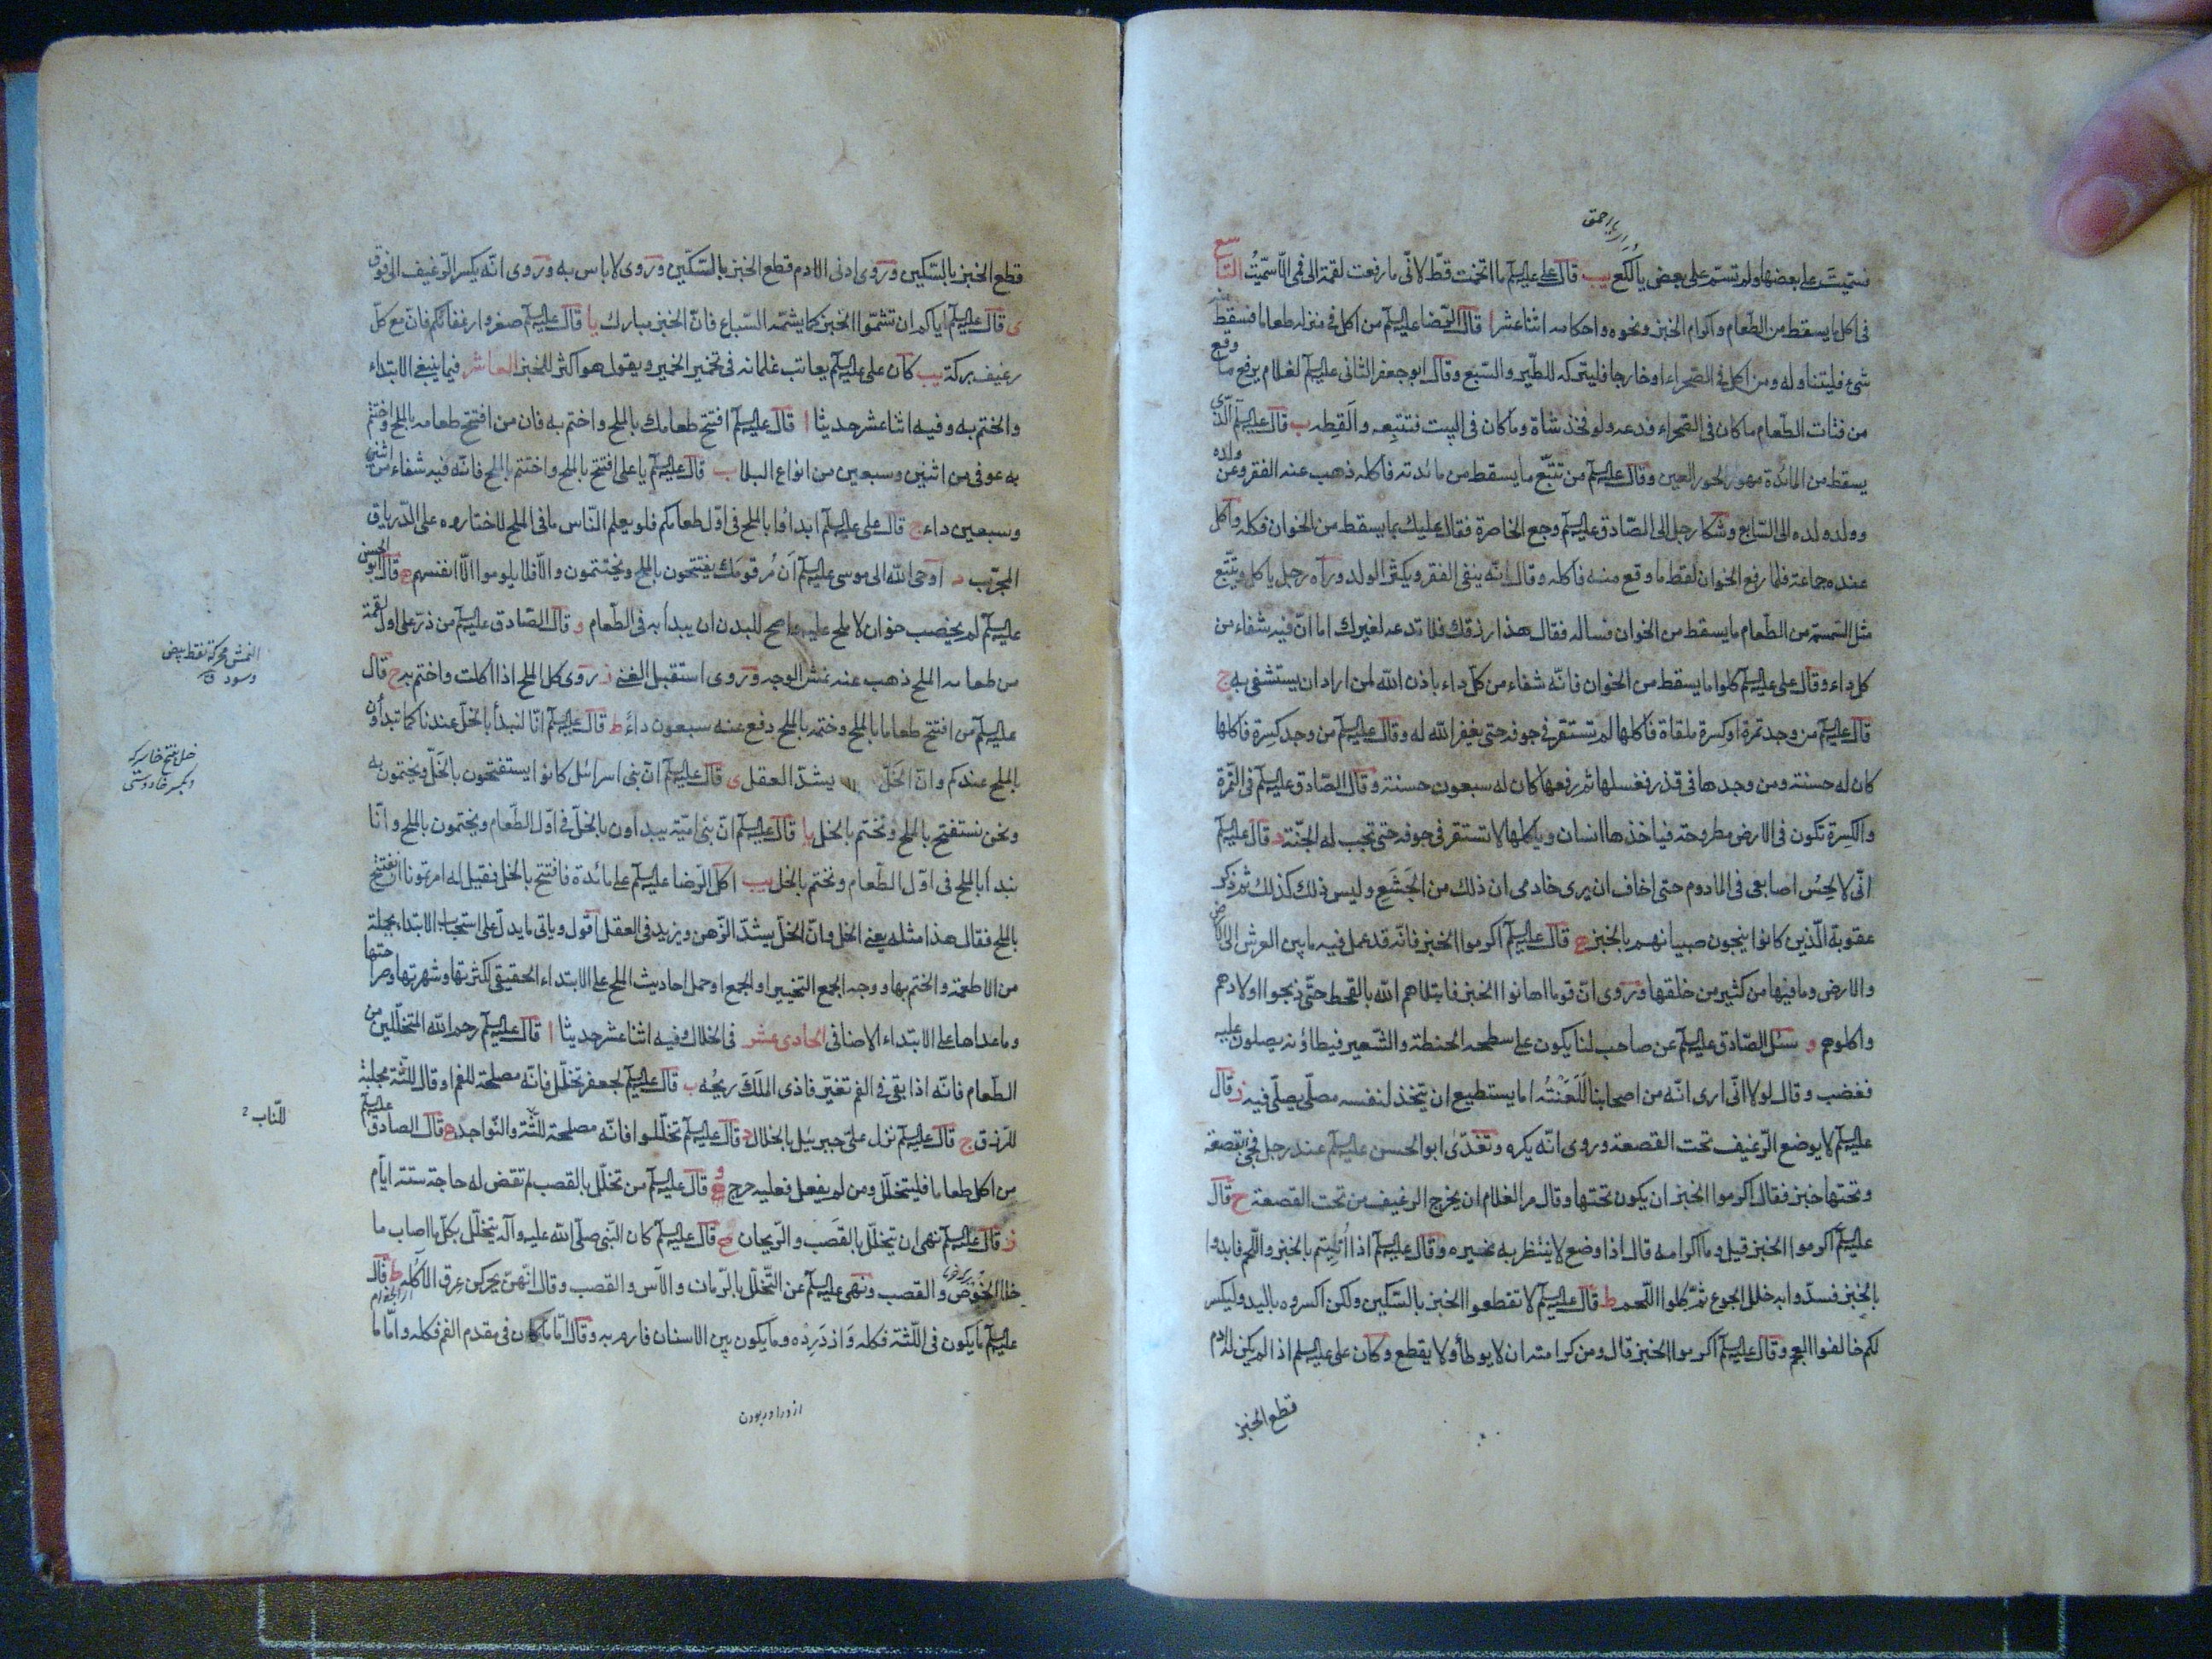 فسمّيت على بعضها ولم تسمّ على بعض يا لكع يب قال على عليه السلم ما اتخمت قطّ لانّى ما رفعت لقمة الى فمى الّا سمّيت التاسع
فى اكل ما يسقط من الطّعام واكرام الخبز ونحوه واحكامه اثنا عشر ا قال الرّضا عليه السلم من اكل فى منزله طعاما فسقط منه
شىء فليتناوله ومن اكل فى الصّحراء او خارجا فليتركه للطّير والسّبع وقال ابو جعفر الثانى عليه السلم لغلام يرفع ما وقع
من فتات الطّعام ما كان فى الصّحراء فدعه ولو فخذ شاة وما كان فى البيت فتتبعه والقطه ب قال عليه السلم الّذى
يسقط من المائدة مهور الحور العين وقال عليه السلم من تتبّع ما يسقط من مائدته فاكله ذهب عنه الفقر وعن ولده
وولد ولده الى السّابع وشكا رجل الى الصّادق عليه السلم وجع الخاصرة فقال عليك بما يسقط من الخوان فكله واكل
عنده جماعة فلمّا رفع الخوان لقط ما وقع منه فاكله وقال انّه ينفى الفقر ويكثر الولد ورآه رجل ياكل ويتتبّع
مثل السّمسم من الطّعام ما يسقط من الخوان فساله فقال هذا رزقك فلا تدعه لغيرك اما انّ فيه شفاء من
كل داء وقال على عليه السلم كلوا ما يسقط من الخوان فانّه شفاء من كلّ داء باذن الله لمن اراد ان يستشفى به ج
قال عليه السلم من وجد تمرة او كسرة ملقاة فاكلها لم تستقر فى جوفه حتى يغفر الله له وقال عليه السلم من وجد كسرة فاكلها
كان له حسنة ومن وجدها فى قذر فغسلها ثم رفعها كان له سبعون حسنة وقال الصّادق عليه السلم فى التّمرة
والكسرة تكون فى الارض مطروحة فياخذها انسان وياكلها لا تستقر فى جوفه حتى تجب له الجنّة د قال عليه السلم
انّى لالحس اصابعى فى المادوم حتى اخاف ان يرى خادمى ان ذلك من الجشع وليس ذلك كذلك ثم ذكر
عقوبة الّذين كانوا ينجون صبيانهم بالخبز ه قال عليه السلم اكرموا الخبز فانّه قد عمل فيه ما بين العرش الى الارض
والارض وما فيها من كثير من خلقها وروى انّ قوما اهانوا الخبز فابتلاهم الله بالقحط حتّى ذبحوا اولادهم
واكلوهم و سئل الصّادق عليه السلم عن صاحب لنا يكون على سطحه الحنطة والشّعير فيطاؤنه يصلون عليه
فغضب وقال لولا انّى ارى انّه من اصحابنا للعنته اما يستطيع ان يتّخذ لنفسه مصلّى يصلّى فيه ز قال
عليه السلم لا يوضع الرّغيف تحت القصعة وروى انّه يكره وتغدّى ابو الحسن عليه السلم عند رجل فجئ بقصعة
وتحتها خبز فقال اكرموا الخبز ان يكون تحتها وقال مر الغلام ان يخرج الرغيف من تحت القصعة ح قال
عليه السلم اكرموا الخبز قيل وما اكرامه قال اذا وضع لا ينتظر به غيره وقال عليه السلم اذا اتيتم بالخبز واللّحم فابدوا
بالخبز فسدّوا به خلل الجوع ثمّ كلوا اللّحم ط قال عليه السلم لا تقطعوا الخبز بالسّكين ولكن اكسروه باليد وليكسر
لكم خالفوا العجم وقال عليه السلم اكرموا الخبز قال ومن كرامته ان لا يوطأ ولا يقطع وكان على عليه السلم اذا لم يكن له ادم
قطع الخبز
قطع الخبز بالسّكين وروى ادنى الادم قطع الخبز بالسّكين وروى لا باس به وروى انّه يكسر الرّغيف الى فوق
ى قال عليه السلم اياكم ان تشمّوا الخبز كما يشمّه السّباع فانّ الخبز مبارك يا قال عليه السلم صغروا رغفانكم فانّ مع كلّ
رغيف بركة يب كان على عليه السلم يعاتب غلمانه فى تخمير الخمير ويقول هو اكثر للخبز العاشر فيما ينبغى الابتداء
والختم به وفيه اثنا عشر حديثا ا قال عليه السلم افتتح طعامك بالملح واختم به فان من افتتح طعامه بالملح وختم
به عوفى من اثنين وسبعين من انواع البلا ب قال عليه السلم يا على افتتح بالملح واختتم بالملح فانّه فيه شفاء من اثنين
وسبعين داء ج قال على عليه السلم ابداوا بالملح فى اوّل طعامكم فلو يعلم النّاس ما فى الملح لاختاروه على الدّرياق
المجرّب د اوحى الله الى موسى عليه السلم ان مر قومك يفتتحون بالملح ويختتمون والّا فلا يلوموا الّا انفسهم ه قال ابو الحسن
عليه السلم لم يخصب خوان لا ملح عليه واصح للبدن ان يبدأ به فى الطّعام و قال الصّادق عليه السلم من ذرّ على اول لقمة
من طعامه الملح ذهب عنه نمش الوجه وروى استقبل الغنى ز روى كل الملح اذا اكلت واختم به ح قال
عليه السلم من افتتح طعاما بالملح وختمه بالملح دفع عنه سبعون داء ط قال عليه السلم انّا لنبدأ بالخلّ عندنا كما تبدأون
بالملح عندكم وانّ الخلّ يشدّ العقل ى قال عليه السلم انّ بنى اسرائيل كانوا يستفتحون بالخلّ ويختمون به
ونحن نستفتح بالملح ونختم بالخل يا قال عليه السلم انّ بنى اميّة يبداون بالخلّ فى اوّل الطّعام ويختمون بالملح وانّا
نبدا بالملح فى اوّل الطّعام ونختم بالخل يب اكل الرّضا عليه السلم على مائدة فافتتح بالخل فقيل له امرتمونا ان نفتتح
بالملح فقال هذا مثله يعنى الخل وانّ الخلّ يشدّ الذّهن ويزيد فى العقل اقول وياتى ما يدلّ على استحباب الابتداء بجملة
من الاطعمة والختم بها ووجه الجمع التخيير او الجمع او حمل احاديث الملح على الابتداء الحقيقى لكثرتها وشهرتها وصراحتها
وما عداها على الابتداء الاضافى الحادى عشر فى الخلال وفيه اثنا عشر حديثا ا قال عليه السلم رحم الله المتخلّلين من
الطّعام فانّه اذا بقى فى الفم تغيّر فاذى الملك ريحه ب قال عليه السلم لجعفر تخلّل فانّه مصلحة للفم او قال للّثة مجلبة
للرّزق ج قال عليه السلم نزل علىّ جبرئيل بالخلال د قال عليه السلم تخلّلوا فانّه مصلحة للّثة والنّواجد ه قال الصادق عليه السلم
من اكل طعاما فليتخلّل ومن لم يفعل فعليه حرج و قال عليه السلم من تخلّل بالقصب لم تقض له حاجة ستة ايّام
ز قال عليه السلم نهى ان يتخلّل بالقصب والرّيحان ح قال عليه السلم كان النّبى صلّى الله عليه وآله يتخلّل بكلّ ما اصاب ما
خلا الخوص والقصب ونهى عليه السلم عن التّخلّل بالرّمان والآس والقصب وقال انّهنّ يحركن عرق الآكلة ط قال
عليه السلم ما يكون فى اللّثة فكله وازدرده وما يكون بين الاسنان فارم به وقال امّا ما كان فى مقدم الفم فكله وامّا ما
النمش محركة نقط بيض
وسود ق
خل بفتح خا سركه
وبكسر خا دوستى
للنّاب